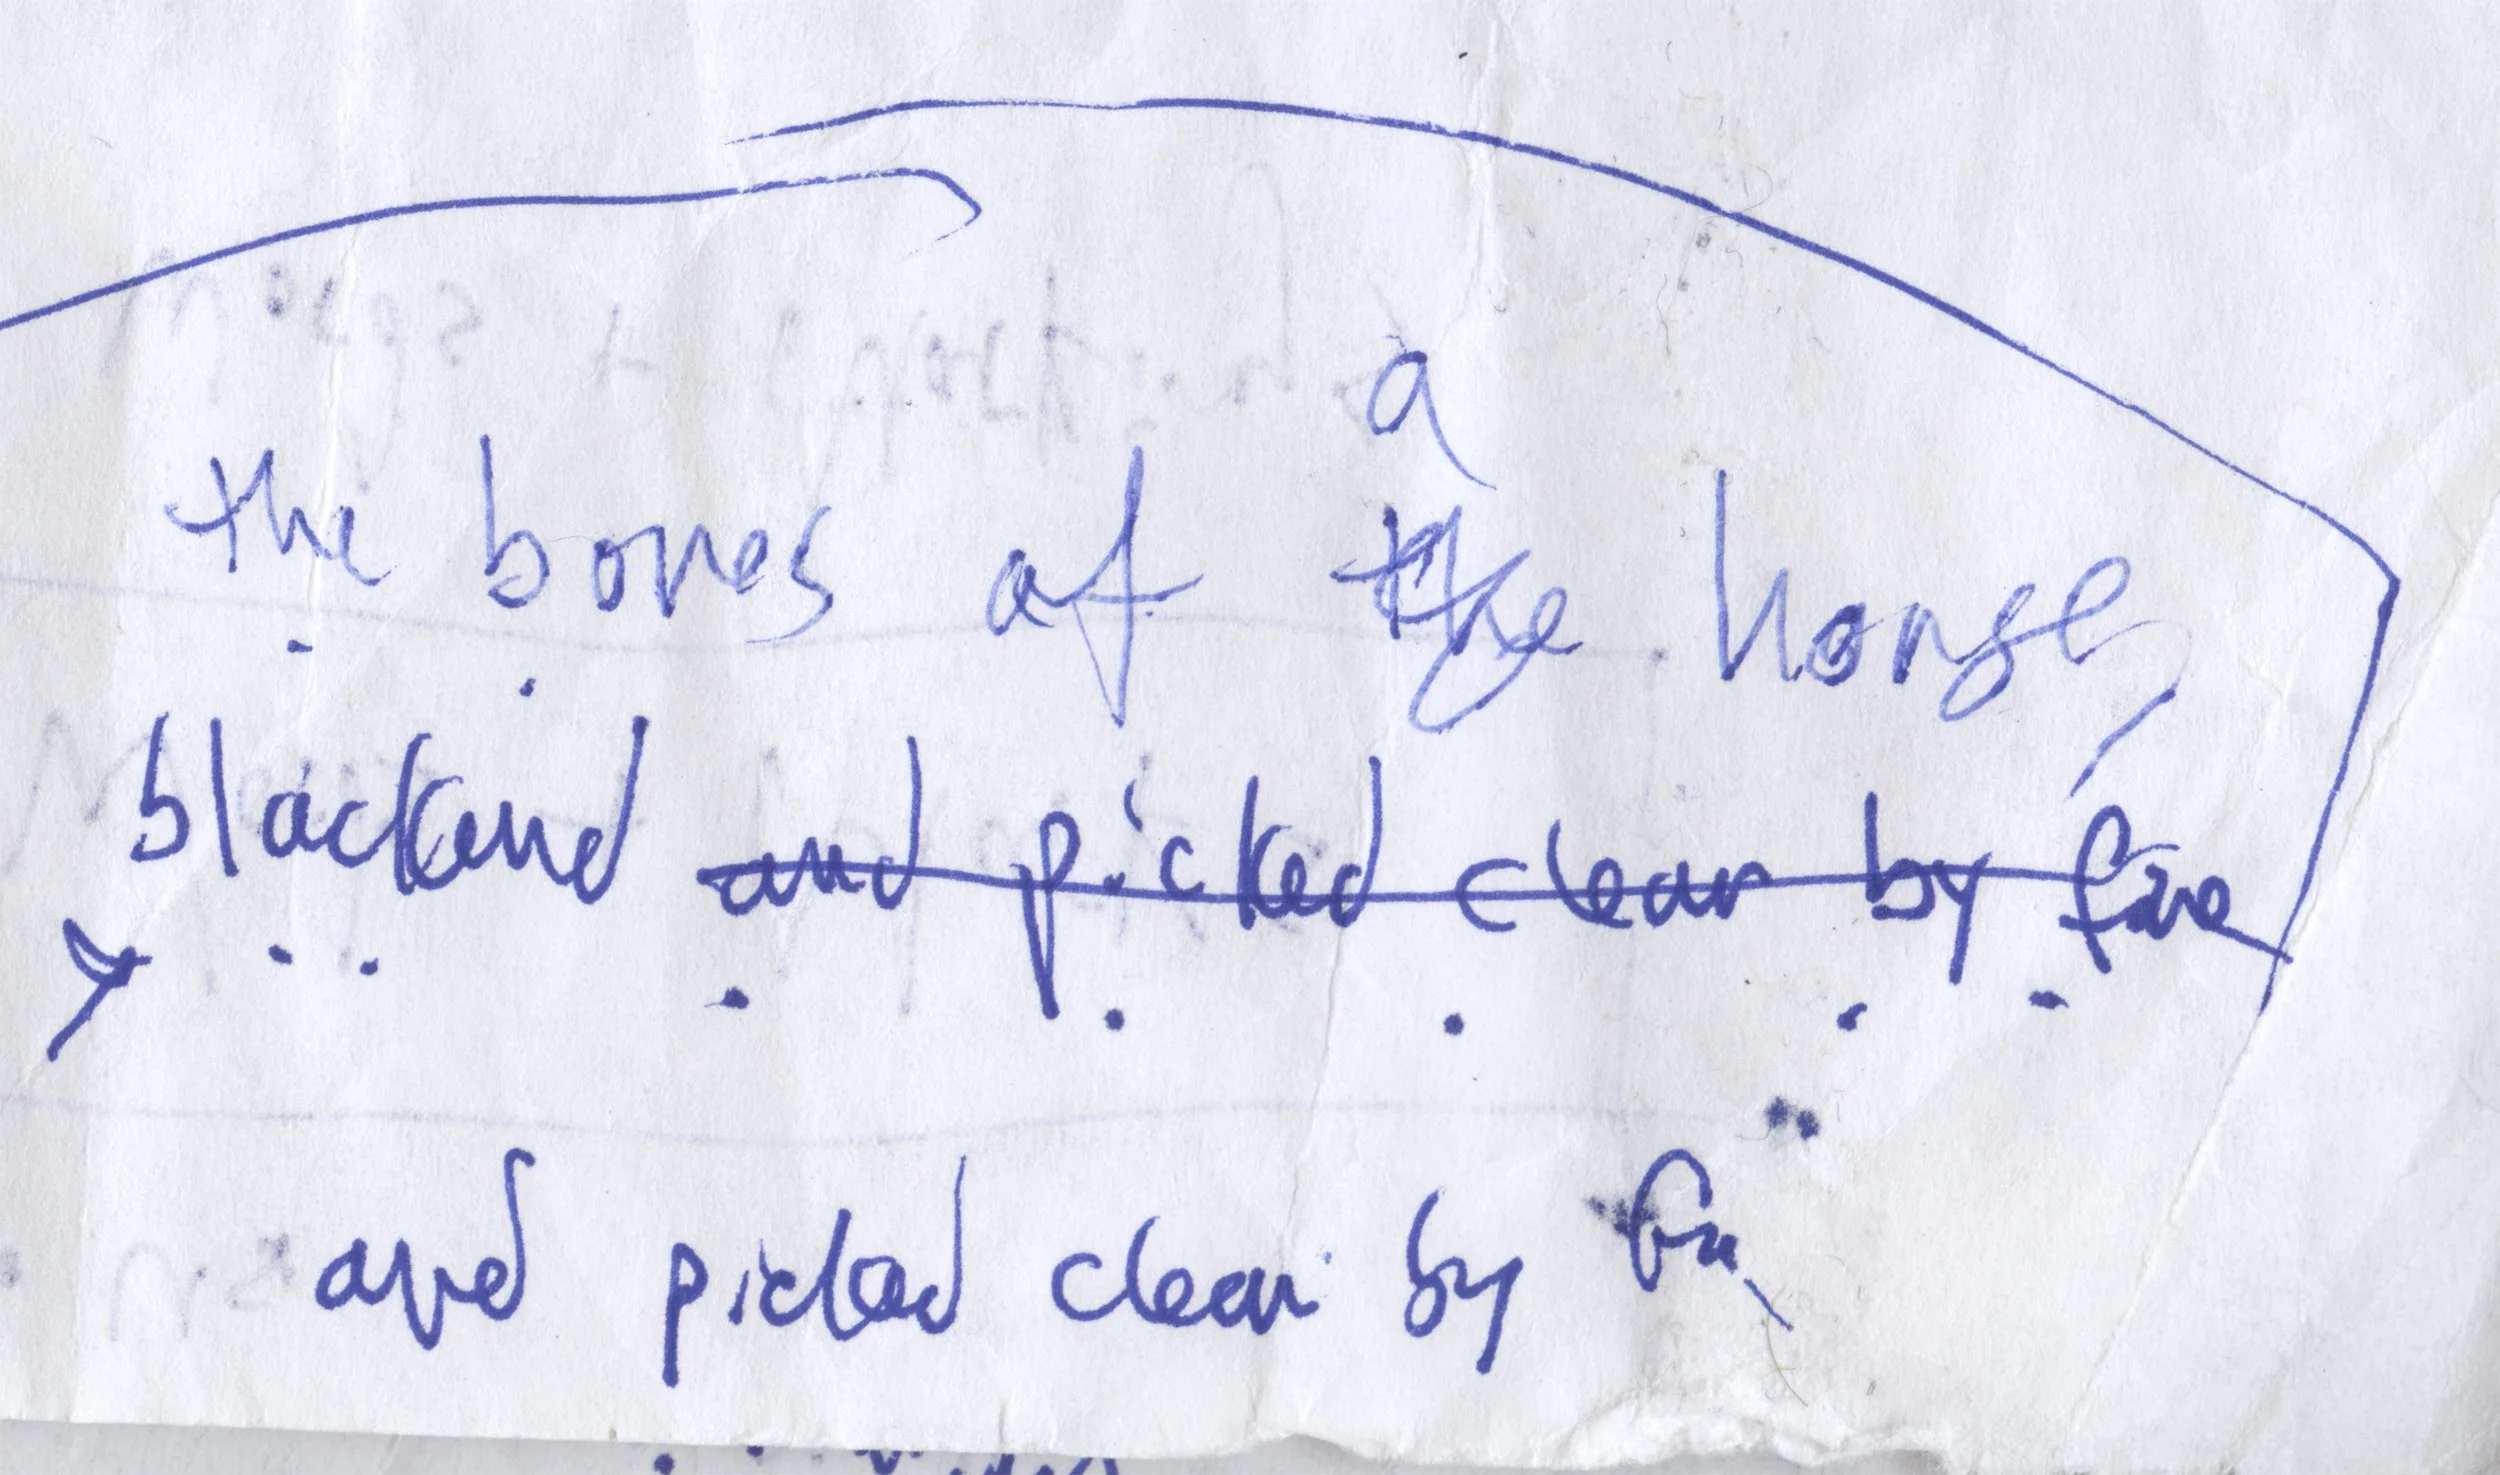 a
the bones of the house,
blackened and picked clean by fire
and picked clean by fire